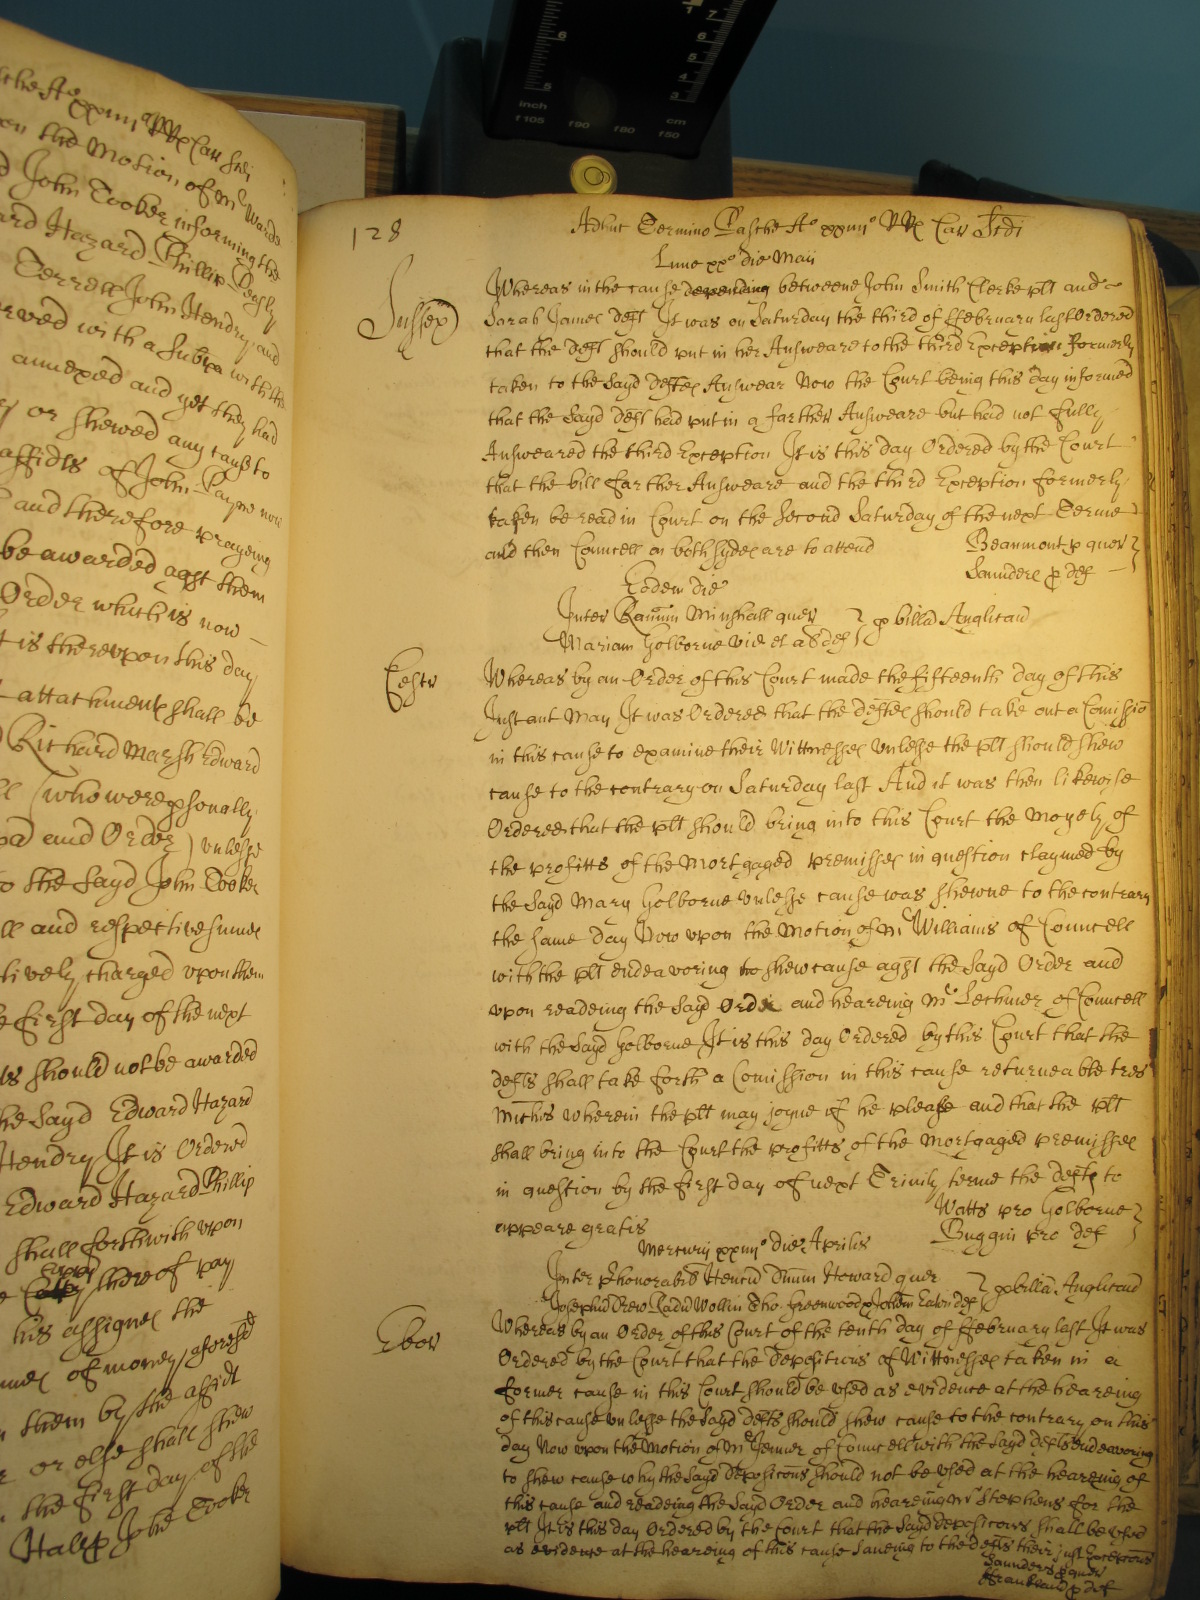 on the Motion of Mr Warde
John Tooker informing the
ard Hazard Phillip
Terrell John Hendry and
erved with a Subpa with the
annexed and yet they had
or shewed any cause to
affidts of John Payne now
and therefore prayeing
be awarded agst them
Order which is now
t is thereupon this day
attachments shall be
Richard Marsh Edward
(who were psonally
and Order) unlesse
o the Sayd John Tooker
ll and respective summes
tively charged upon them
e first day of the next
ts should not be awarded
he Sayd Edward Hazard
Hendry It is Ordered
Edward Hazard Phillip
shall forthwith upon
thereof pay
his assignes the
of money aforesd
them by the affidt
or else shall shew
the first day of the
John Tooker
128
Adhuc Termino Pasche Ao xxiiijo RRs Car Scdi
Lune xxo die Maii
Sussex
Whereas in the cause depending betweene John Smith Clerke plt and
Sarah James deft It was on Saturday the third of ffebruary last Ordered
that the deft should put in her Answeare to the third Exception formerly
taken to the Sayd deftes Answear Now the Court being this day informed
that the Sayd deft had put in a farther Answeare but had not fully
Answeared the third Exception It is this day Ordered by the Court
that the bill farther Answeare and the third Exception formerly
taken be read in Court on the Second Saturday of the next Terme
and then Councell on both sydes are to attend
Beaumont p quer
Saunders p def
Eodem die
Inter Minshall quer
Mariam Golborne vid et als def
p billa Anglican
Cestr
Whereas by an Order of this Court made the fifteenth day of this
Instant May It was Ordered that the deftes should take out a Comissio
in this cause to examine their Wittnesses unlesse the plt should shew
cause to the contrary on Saturday last And it was then likewise
Ordered that the plt should bring into this Court the Moyety of
the profitts of the Mortgaged premisses in question claymed by
the Sayd Mary Golborne unlesse cause was shewne to the contrary
the same day Now upon the Motion of Mr Williams of Councell
with the plt endeavoring to shew cause agst the Sayd Order and
upon readeing the Sayd Order and heareing Mr Lechmer of Councell
with the Sayd Golborne It is this day Ordered by this Court that the
defts shall take forth a Comission in this cause returneable tres
Michis wherein the plt may joyne if he please and that the plt
shall bring into the Court the profitts of the Mortgaged premisses
in question by the first day of next Trinity terme the defts to
appeare gratis
Watts pro Golborne
Buggin pro def
Mercurij xxiiijo die Aprilis
Inter Henric Howard quer
Josephu Drew Wollin Tho. Greenwood def
p billa Anglican
Ebor
Whereas by an Order of this Court of the tenth day of ffebruary last It was
Ordered by the Court that the depositions of Wittnesses taken in a
former cause in this Court should be used as evidence at the heareing
of this cause unlesse the Sayd defts should shew cause to the contrary on this
day Now upon the Motion of Mr Jenner of Councell with the Sayd defts endeavoring
to shew cause why the Sayd deposicons should not be used at the heareing of
this cause and readeing the Sayd Order and heareing Mr Stephens for the
plt It is this day Ordered by the Court that the Sayd deposicons shall be used
as evidence at the heareing of this cause Saveing to the defts their just Excepcons
Saunders p quer
ffrankland p def
inch
cm